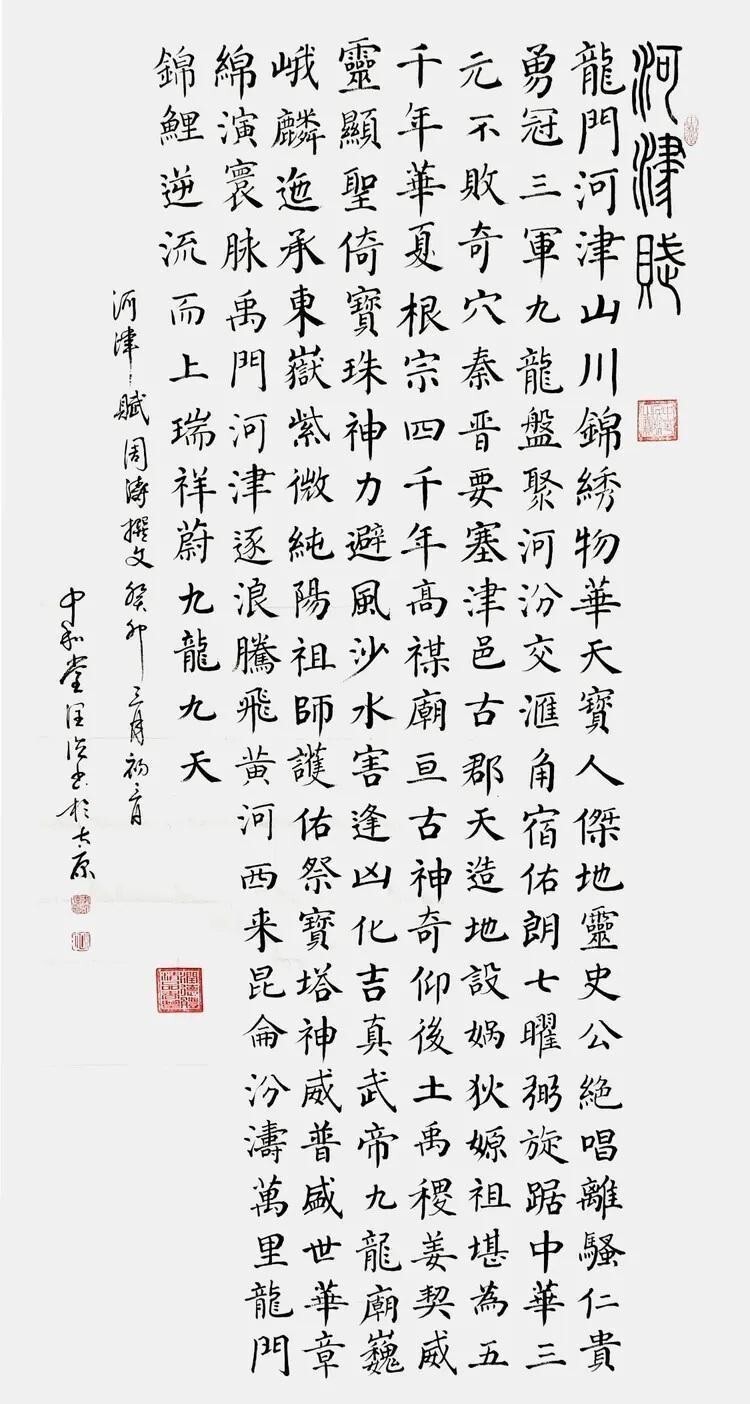 河津賦
龍門河津山川錦綉物華天寶人傑地靈史公絶唱離騷仁貴
勇冠三軍九龍盤聚河汾交滙角宿佑朗七曜弼旋踞中華三
元不敗奇穴秦晋要塞津邑古郡天造地設娲狄嫄祖堪為五
千年華夏根宗四千年高禖廟亘古神奇仰後土禹稷姜契威
靈顯聖倚寶珠神力避風沙水害逢凶化吉真武帝九龍廟巍
峨麟迤承東嶽紫微純陽祖師護佑祭寶塔神威普盛世華章
綿演寰脉禹門河津逐浪騰飛黄河西来昆侖汾濤萬里龍門
錦鯉逆流而上瑞祥蔚九龍九天
河津賦周濤撰文癸卯三月初二月
中和堂汪治書於太原